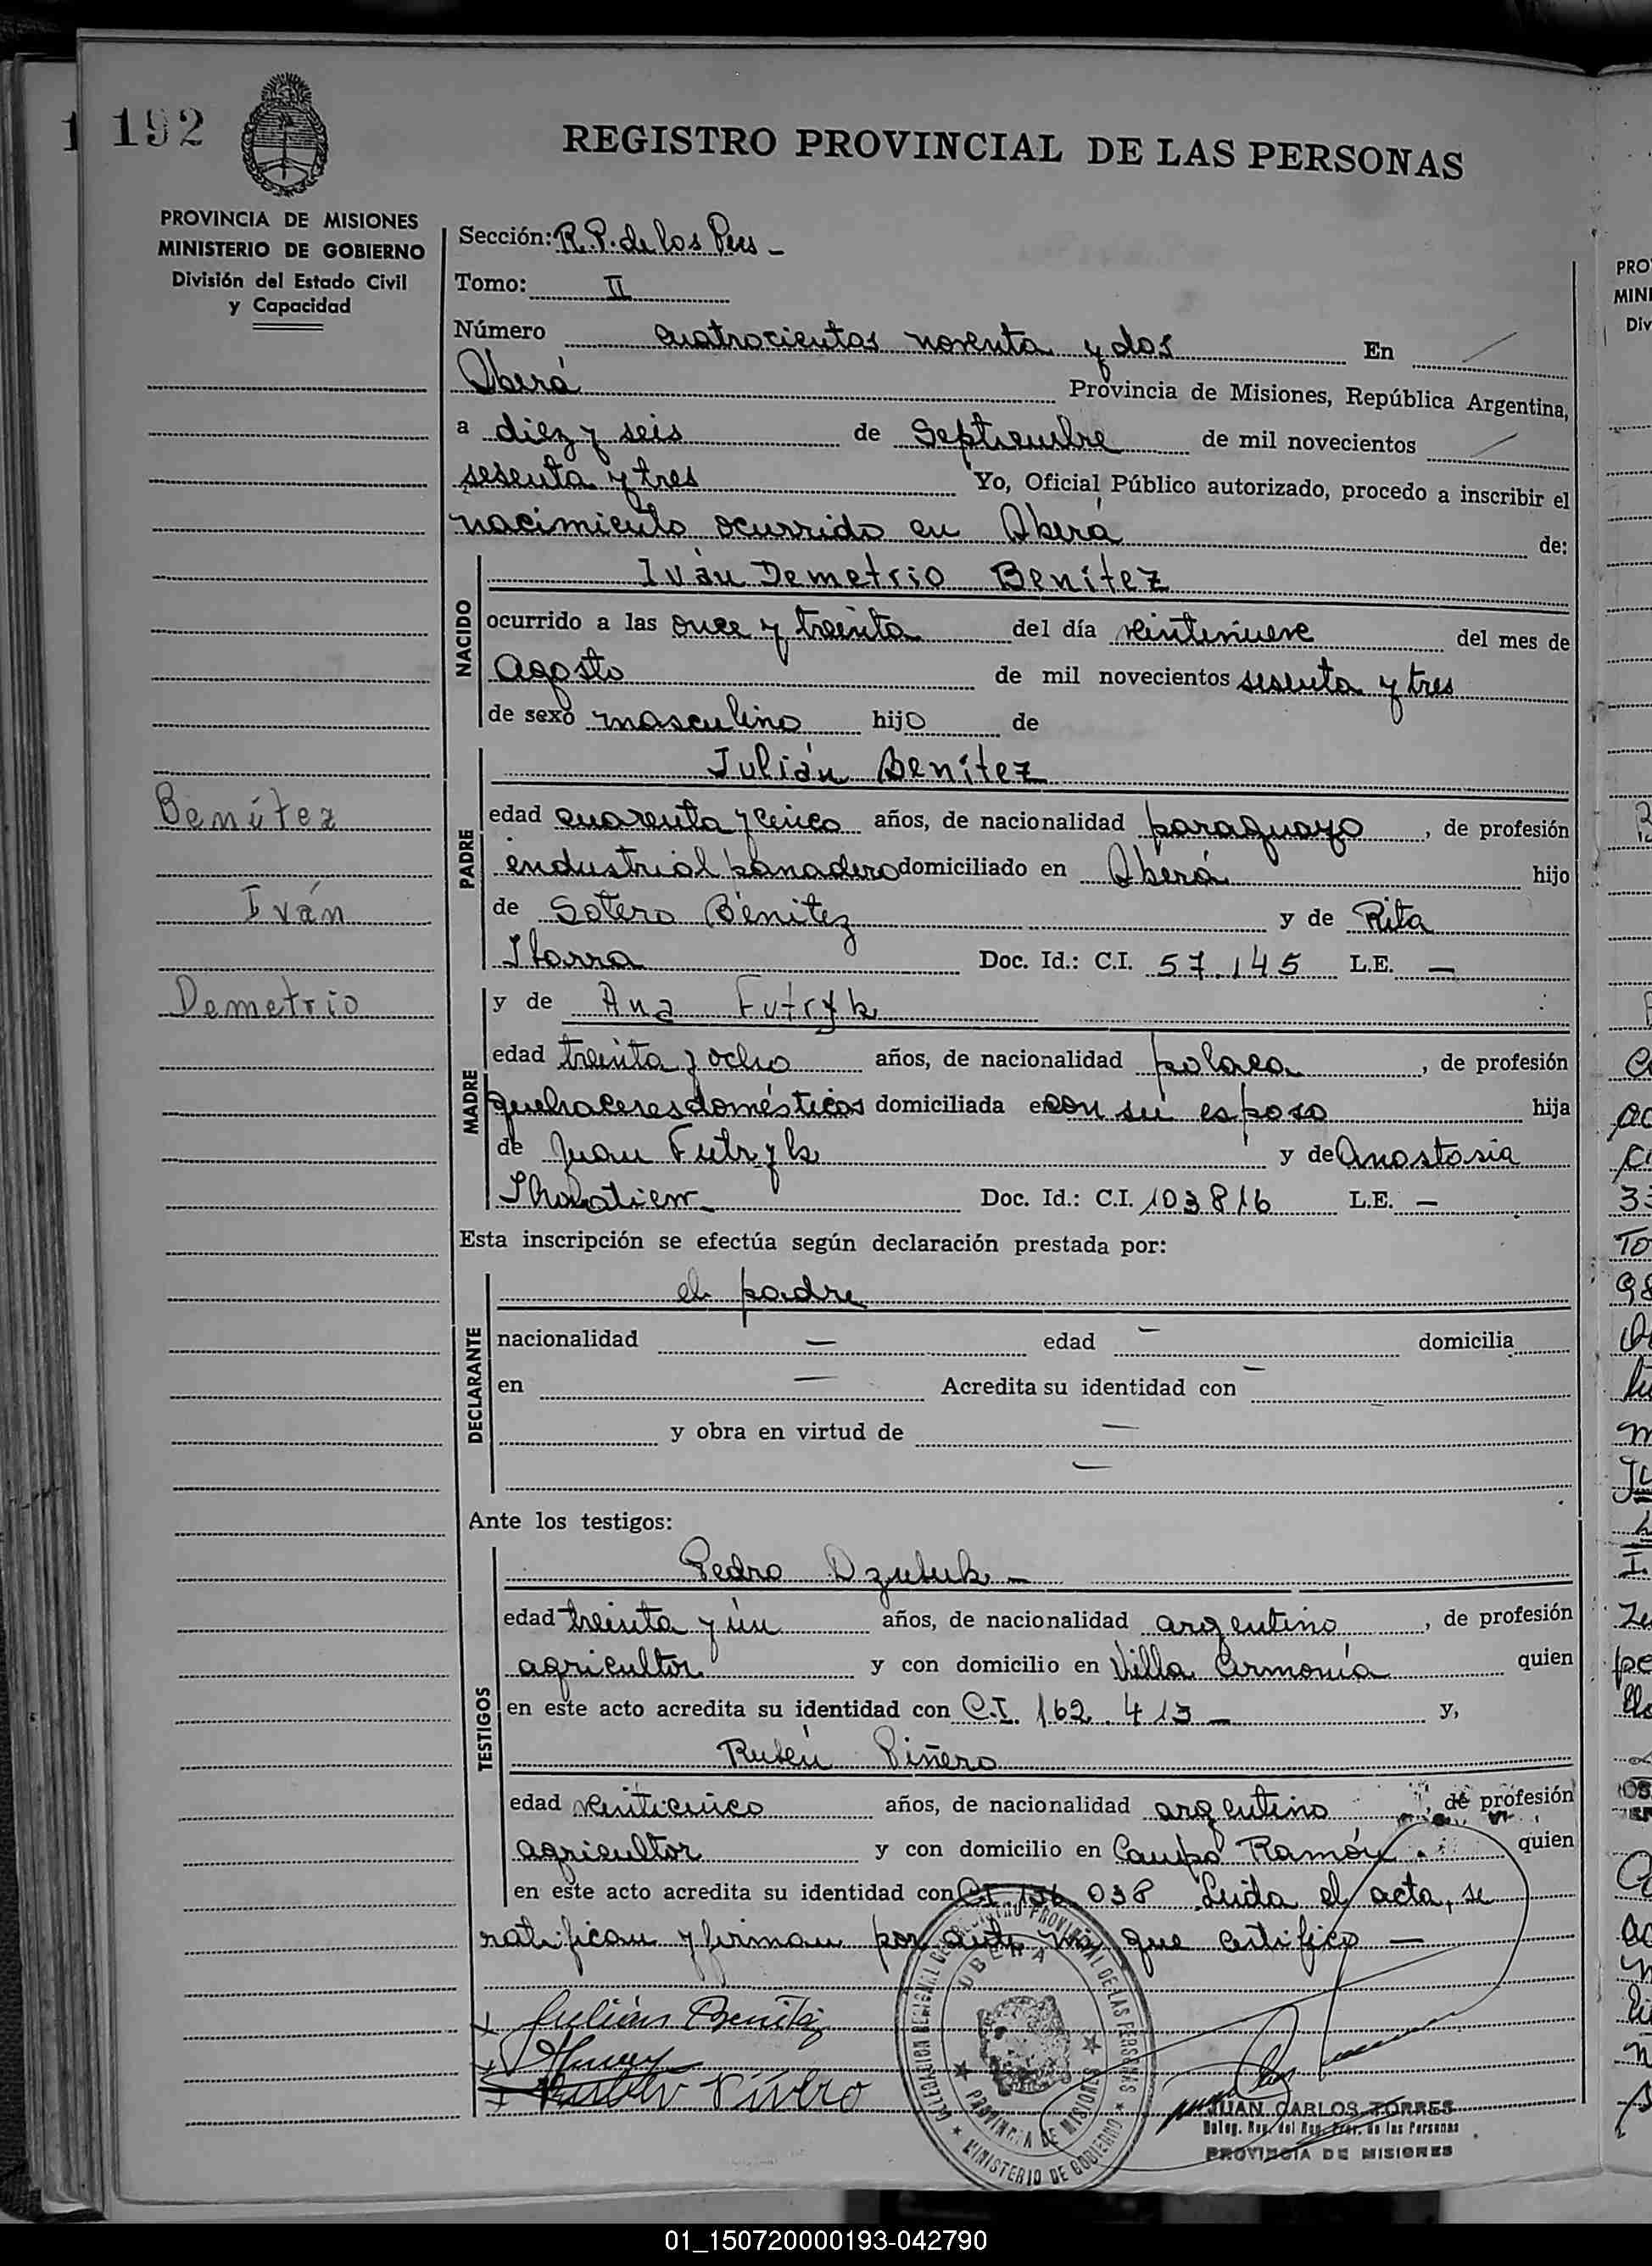 192
REGISTRO PROVINCIAL DE LAS PERSONAS
PROVINCIA DE MISIONES
MINISTERIO DE GOBIERNO
División del Estado Civil
y Capacidad
Sección: R.P. de los Pers -
Tomo: II
Número cuatrocientos noventa y dos En
Oberá Provincia de Misiones, República Argentina,
a diez y seis de Septiembre de mil novecientos
sesenta y tres Yo, Oficial Público autorizado, procedo a inscribir el
nacimiento ocurrido en Oberá de:
NACIDO
Iván Demetrio Benítez
ocurrido a las once y treinta del día veintinueve del mes de
Agosto de mil novecientos sesenta y tres
de sexo masculino hijo de
PADRE
Julián Benítez
edad cuarenta y cinco años, de nacionalidad paraguayo, de profesión
industrial panadero domiciliado en Oberá hijo
de Sotero Benitez y de Rita
Ibarra Doc. Id.: C.I. 57.145 L.E. —
Benítez
Iván
Demetrio
MADRE
y de Ana Futryk
edad treinta y ocho años, de nacionalidad polaca, de profesión
quehaceres domésticos domiciliada en con su esposo hija
de Juan Futryk y de Anastasia
Doc. Id.: C.I. 103816 L.E. —
Esta inscripción se efectúa según declaración prestada por:
DECLARANTE
el padre
nacionalidad — edad — domicilia
en — Acredita su identidad con —
y obra en virtud de —
—
Ante los testigos:
TESTIGOS
Pedro Dzubuk —
edad treinta y un años, de nacionalidad argentino, de profesión
agricultor y con domicilio en Villa Armonía quien
en este acto acredita su identidad con C.I. 162.413 — y,
Rubén Piñero
edad veinticinco años, de nacionalidad argentino de profesión
agricultor y con domicilio en Campo Ramón. quien
en este acto acredita su identidad con C.I. 038 Leida el acta, se
ratifican y firman por ante mí que certifico —
Julián Benítez
Rubén Piñero
DELEGACION REGIONAL DEL REGISTRO PROVINCIAL DE LAS PERSONAS
OBERA
PROVINCIA DE MISIONES
MINISTERIO DE GOBIERNO
JUAN CARLOS TORRES
Deleg. Reg. del Reg. Prov. de las Personas
PROVINCIA DE MISIONES
01_150720000193-042790